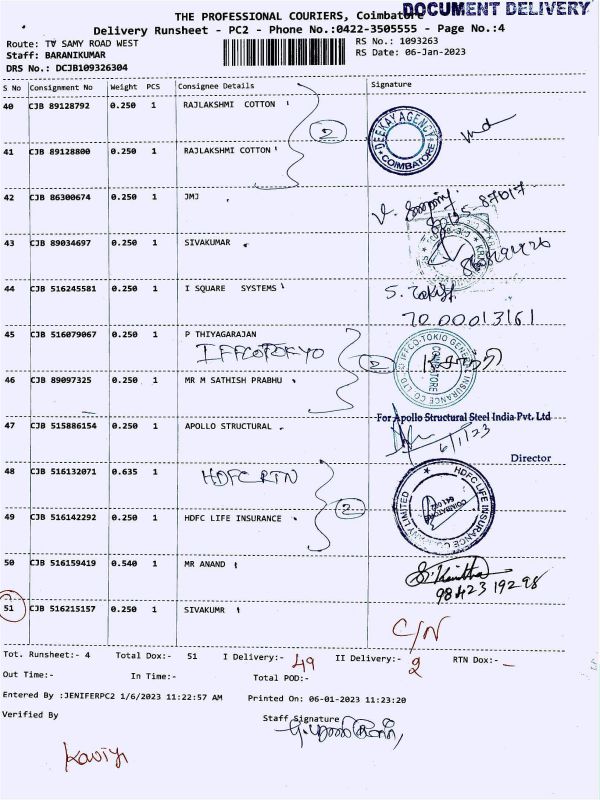 THE PROFESSIONAL COURIERS, Coimbatore
DOCUMENT DELIVERY
Delivery Runsheet - PC2 - Phone No.:0422-3505555 - Page No.:4
Route: TV SAMY ROAD WEST
RS No.: 1093263
Staff: BARANIKUMAR
RS Date: 06-Jan-2023
DRS No.: DCJB109326304
S No Consignment No Weight PCS Consignee Details Signature
40 CJB 89128792 0.250 1 RAJLAKSHMI COTTON
2
DEEKAY AGENCY COIMBATORE
41 CJB 89128800 0.250 1 RAJLAKSHMI COTTON
42 CJB 86300674 0.250 1 JMJ
43 CJB 89034697 0.250 1 SIVAKUMAR
44 CJB 516245581 0.250 1 I SQUARE SYSTEMS
70.00013161
45 CJB 516079067 0.250 1 P THIYAGARAJAN
IFFCO TOKYO
2
IFFCO-TOKIO GENERAL INSURANCE CO LTD COIMBATORE
46 CJB 89097325 0.250 1 MR M SATHISH PRABHU
For Apollo Structural Steel India Pvt. Ltd
47 CJB 515886154 0.250 1 APOLLO STRUCTURAL
6/1/23
Director
48 CJB 516132071 0.635 1 HDFC RTN
2
HDFC LIFE INSURANCE COMPANY LIMITED
49 CJB 516142292 0.250 1 HDFC LIFE INSURANCE
50 CJB 516159419 0.540 1 MR ANAND
98423 19298
51 CJB 516215157 0.250 1 SIVAKUMR
C/N
Tot. Runsheet:- 4 Total Dox:- 51 I Delivery:- 49 II Delivery:- 2 RTN Dox:- –
Out Time:- In Time:- Total POD:-
Entered By :JENIFERPC2 1/6/2023 11:22:57 AM Printed On: 06-01-2023 11:23:20
Verified By Staff Signature
Kaviya